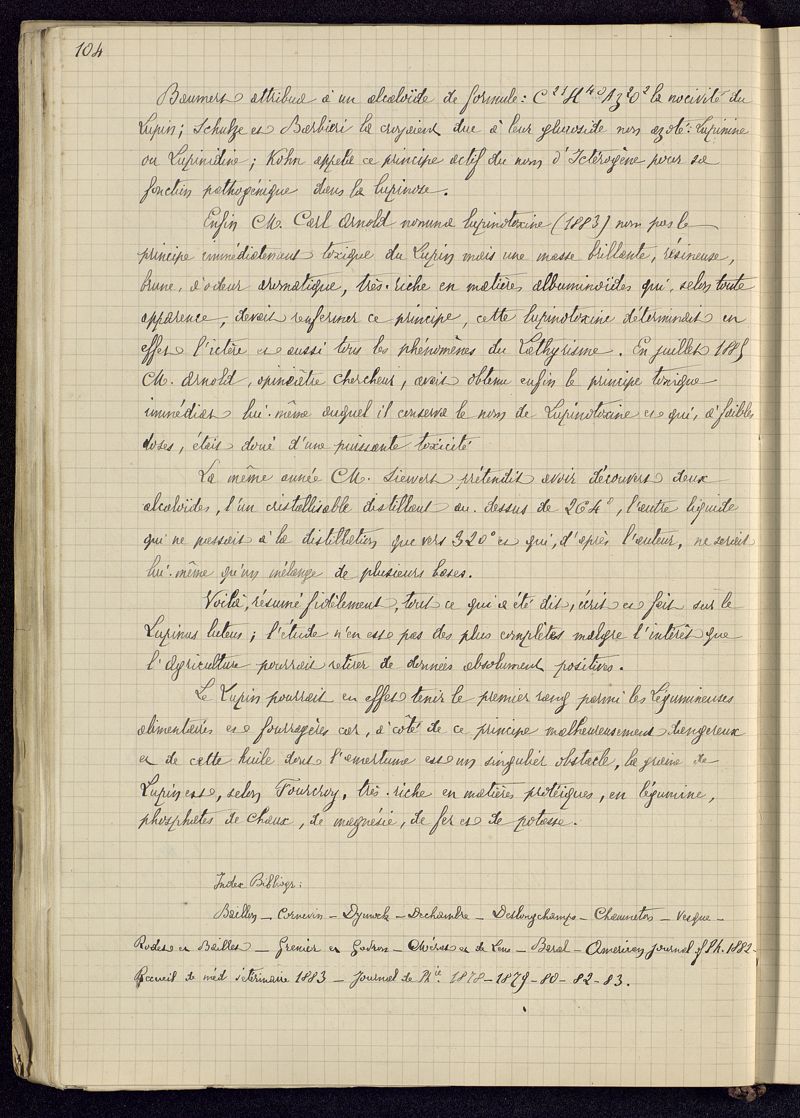 104
Baumert attribua à un alcaloïde de formule : C²¹H⁴⁰Az²O² la nocivité du
Lupin ; Schulze et Barbiéri la croyaient due à leur glucoside non azoté : Lupinine
ou Lupinidine ; Kohn appela ce principe actif du nom d'Ictérogène pour sa
fonction pathogénique dans la lupinose.
Enfin M. Carl Arnold nomma lupinotoxine (1883) non pas le
principe immédiatement toxique du Lupin mais une masse brillante, résineuse,
brune, d'odeur aromatique, très-riche en matières albuminoïdes qui, selon toute
apparence, devait renfermer ce principe, cette lupinotoxine déterminait en
effet l'ictère et aussi tous les phénomènes du Lathyrisme. En juillet 1885
M. Arnold, opiniâtre chercheur, avait obtenu enfin le principe toxique
immédiat lui-même auquel il conserva le nom de Lupinotoxine et qui, à faibles
doses, était doué d'une puissante toxicité
La même année M. Siewert prétendit avoir découvert deux
alcaloïdes, l'un cristallisable distillant au-dessus de 264°, l'autre liquide
qui ne passait à la distillation que vers 320° et qui, d'après l'auteur, ne serait
lui-même qu'un mélange de plusieurs bases.
Voilà, résumé fidèlement, tout ce qui a été dit, écrit et fait sur le
Lupinus luteus ; l'étude n'en est pas des plus complètes malgré l'intérêt que
l'agriculture pourrait retirer de données absolument positives.
Le Lupin pourrait en effet tenir le premier rang parmi les Légumineuses
alimentaires et fourragères car, à côté de ce principe malheureusement dangereux
et de cette huile dont l'amertume est un singulier obstacle, la graine de
Lupin est, selon Fourcroy, très-riche en matières protéiques, en légumine,
phosphates de chaux, de magnésie, de fer et de potasse.
Index Bibliogr :
Baillon — Cornevin — Dymock — Dechambre — Deslongchamps — Chaumeton — Vesque —
Rodet et Baillet — Grenier et Godron — Mérat et de Lens — Baral — American Journal of Ph. 1882 —
Recueil de méd vétérinaire 1883 — Journal de Phie. 1878 — 1879 — 80 — 82 — 83.